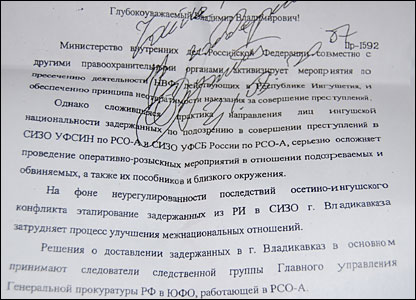 Глубокоуважаемый Владимир Владимирович!
07
Пр-1592
Министерство внутренних дел Российской Федерации совместно с
другими правоохранительными органами активизирует мероприятия по
пресечению деятельности НВФ, действующих в Республике Ингушетия, и
обеспечению принципа неотвратимости наказания за совершение преступлений.
Однако сложившаяся практика направления лиц ингушской
национальности задержанных по подозрению в совершении преступлений в
СИЗО УФСИН по РСО-А и СИЗО УФСБ России по РСО-А, серьезно осложняет
проведение оперативно-розыскных мероприятий в отношении подозреваемых и
обвиняемых, а также их пособников и близкого окружения.
На фоне неурегулированности последствий осетино-ингушского
конфликта этапирование задержанных из РИ в СИЗО г. Владикавказа
затрудняет процесс улучшения межнациональных отношений.
Решения о доставлении задержанных в г. Владикавказ в основном
принимают следователи следственной группы Главного управления
Генеральной прокуратуры РФ в ЮФО, работающей в РСО-А.